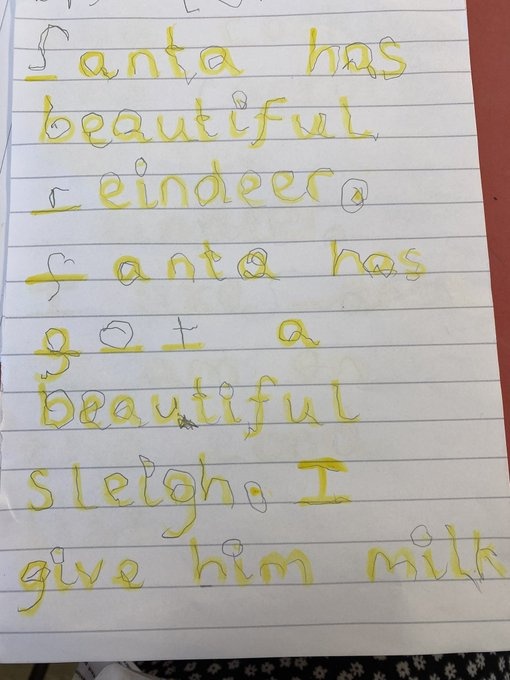 Santa has
beautiful
reindeer.
Santa has
got a
beautiful
sleigh. I
give him milk